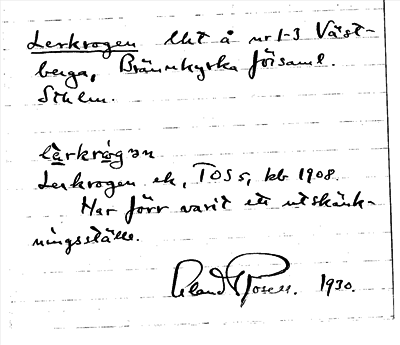 Lerkrogen lht å nr 1-3 Väst-
berga, Brännkyrka församl.
Sthlm.
lèrkrógən
Lerkrogen ek, TOS 5, kb 1908.
Har förr varit ett utskänk-
ningsställe.
Rosell. 1930.